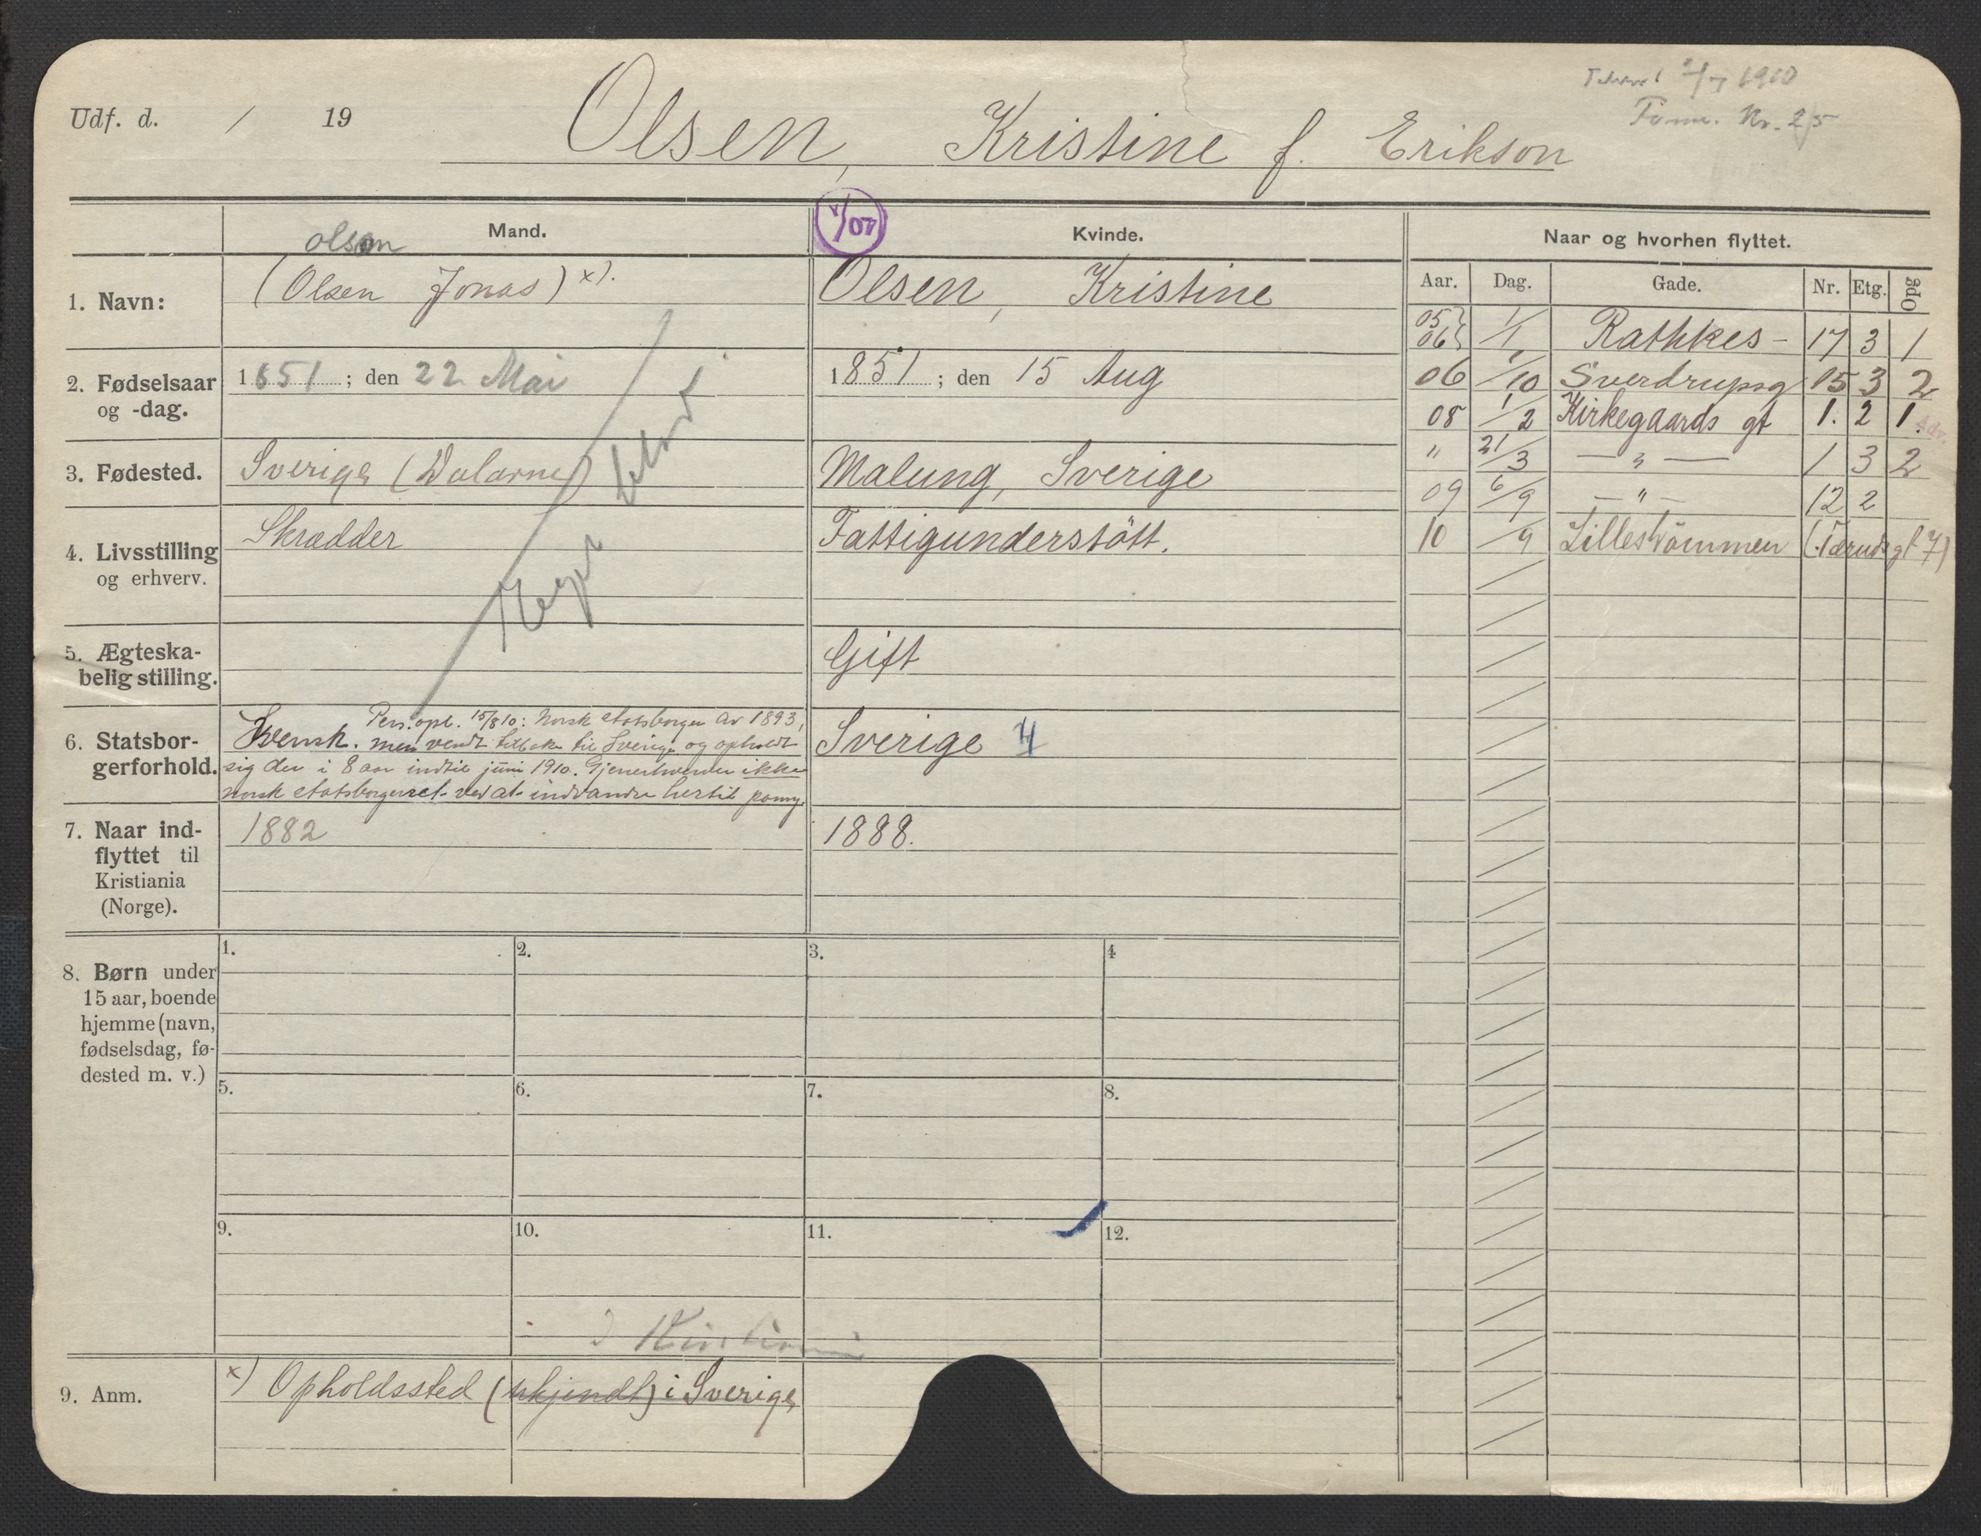 Udf. d. / 19
Olsen, Kristine f. Erikson
1910
Nr. 25
Mand.
Kvinde.
Naar og hvorhen flyttet.
1/07
Olson
1. Navn:
(Olsen Jonas) x).
Olsen, Kristine
2. Fødselsaar og -dag.
1851; den 22 Mai
1851; den 15 Aug
3. Fødested.
Sverige (Dalarne)
Malung, Sverige
4. Livsstilling og erhverv.
Skrædder
Fattigunderstøtt.
5. Ægteska-
belig stilling.
Gift
6. Statsbor-
gerforhold.
Svensk. Pers. opl. 15/8 10: Norsk statsborger av 1893,
men vendt tilbake til Sverige og opholdt
sig der i 8 aar indtil juni 1910. Gjenerhverver ikke
norsk statsborgerret ved at indvandre hertil paany.
Sverige 4
7. Naar ind-
flyttet til
Kristiania
(Norge).
1882
1888.
8. Børn under
15 aar, boende
hjemme (navn,
fødselsdag, fø-
dested m. v.)
1. 2. 3. 4
5. 6. 7. 8.
9. 10. 11. 12.
9. Anm.
x) Opholdssted (ukjendt) i Sverige
Aar. Dag. Gade. Nr. Etg. Opg
05
06 1/1 Rathkes- 17 3 1
06 1/10 Sverdrupsg 15 3 2
08 1/2 Kirkegaards gt 1. 2 1.
Adv.
" 21/3 — " — 1 3 2
09 6/9 — " — 12 2
10 /9 Lillestrømmen (Tæruds gt 7)